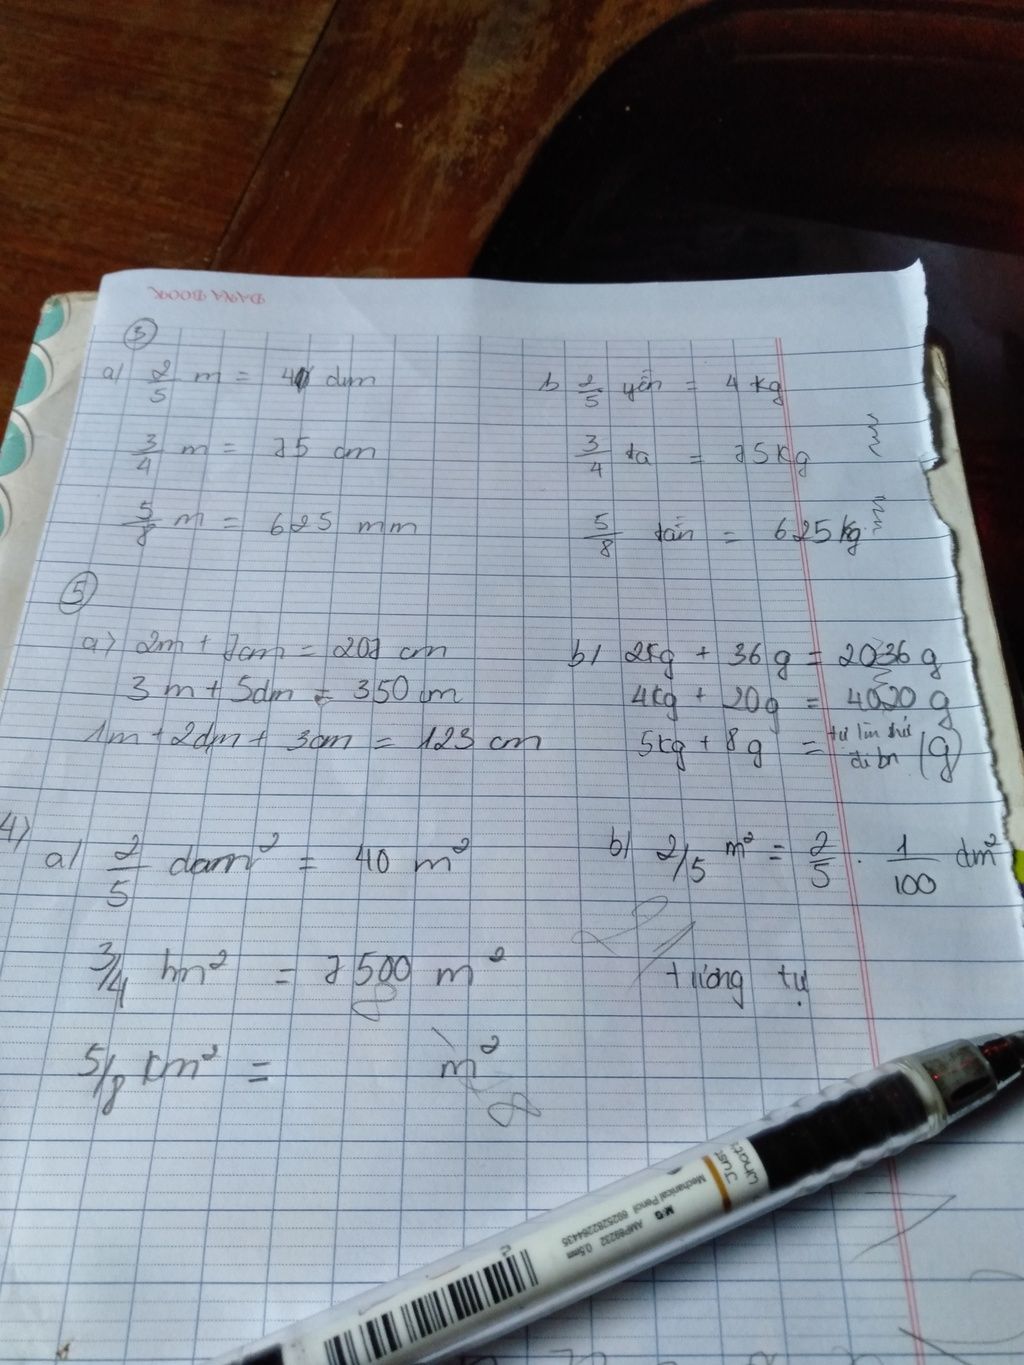 DATABOOK
3
a) 2/5 m = 4 dm
b 2/5 yến = 4 kg
3/4 m = 75 cm
3/4 tạ = 75 kg
5/8 m = 625 mm
5/8 tấn = 625 kg
5
a) 2m + 7cm = 207 cm
b) 2kg + 36 g = 2036 g
3 m + 5dm = 350 cm
4kg + 20g = 4020 g
1m + 2dm + 3cm = 123 cm
5kg + 8g = tự (g)
4)
a) 2/5 dam² = 40 m²
b) 2/5 m² = 2/5 . 1/100 dm²
3/4 hm² = 7500 m²
tương tự
5/8 km² = m²
Just
Mechanical Pencil 6925282264435
M&G AMP89232 0.5mm